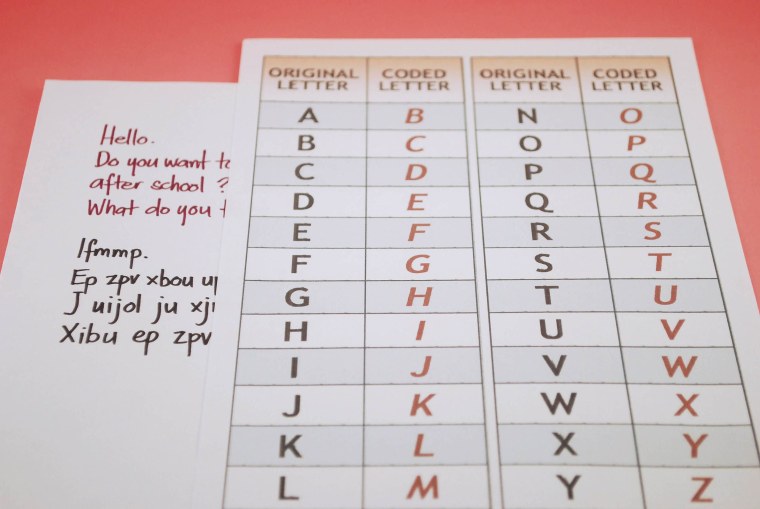 Hello.
Do you want
after school ?
What do you
Ifmmp.
Ep zpv xbou
J uijol ju
Xibu ep zpv
ORIGINAL LETTER CODED LETTER ORIGINAL LETTER CODED LETTER
A B N O
B C O P
C D P Q
D E Q R
E F R S
F G S T
G H T U
H I U V
I J V W
J K W X
K L X Y
L M Y Z